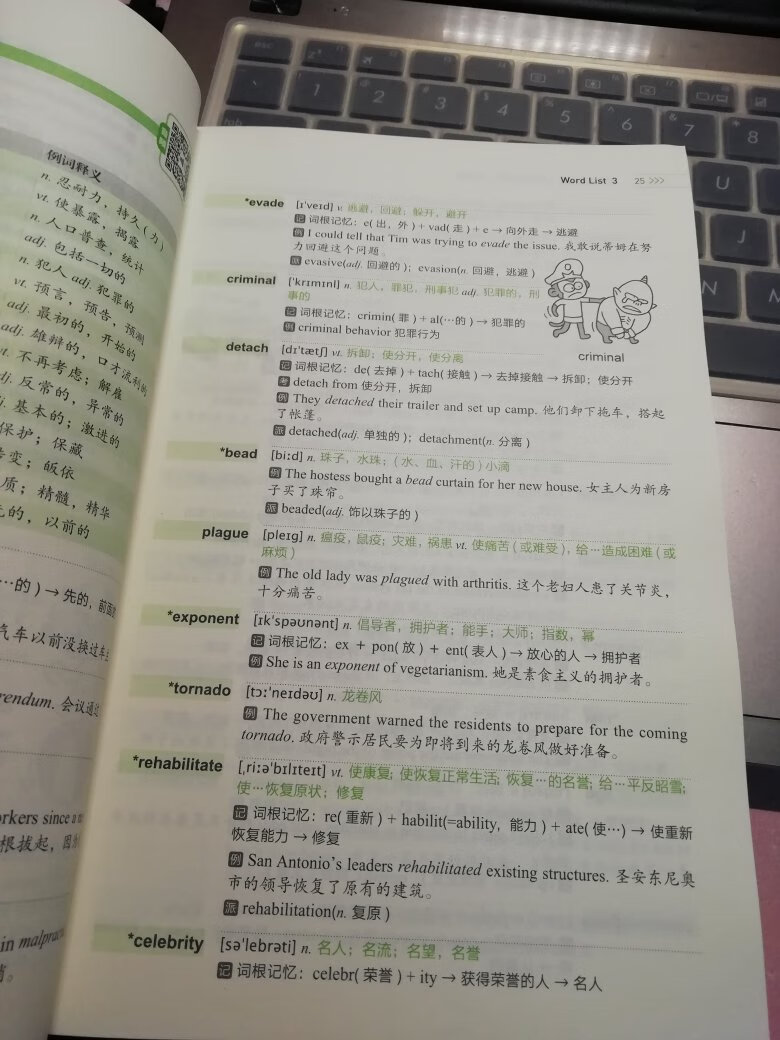 例词释义
n. 忍耐力，持久(力)
vt. 使暴露，揭露
n. 人口普查，统计
adj. 包括一切的
n. 犯人 adj. 犯罪的
vt. 预言，预告，预测
adj. 最初的，开始的
adj. 雄辩的，口才流利的
vt. 不再考虑；解雇
adj. 反常的，异常的
adj. 基本的；激进的
保护；保藏
转变；皈依
质；精髓，精华
的，以前的
…的)→先的，前面的
汽车以前没换过车主
rendum. 会议通过
orkers since a
根拔起，因为
in malprac
Word List 3 25 >>>
*evade [ɪˈveɪd] v. 逃避，回避；躲开，避开
记 词根记忆：e(出，外)+vad(走)+e→向外走→逃避
例 I could tell that Tim was trying to evade the issue. 我敢说蒂姆在努
力回避这个问题。
派 evasive(adj. 回避的)；evasion(n. 回避，逃避)
criminal [ˈkrɪmɪnl] n. 犯人，罪犯，刑事犯 adj. 犯罪的，刑
事的
记 词根记忆：crimin(罪)+al(…的)→犯罪的
例 criminal behavior 犯罪行为
criminal
detach [dɪˈtætʃ] vt. 拆卸；使分开，使分离
记 词根记忆：de(去掉)+tach(接触)→去掉接触→拆卸；使分开
考 detach from 使分开，拆卸
例 They detached their trailer and set up camp. 他们卸下拖车，搭起
了帐篷。
派 detached(adj. 单独的)；detachment(n. 分离)
*bead [biːd] n. 珠子，水珠；(水、血、汗的)小滴
例 The hostess bought a bead curtain for her new house. 女主人为新房
子买了珠帘。
派 beaded(adj. 饰以珠子的)
plague [pleɪg] n. 瘟疫，鼠疫；灾难，祸患 vt. 使痛苦(或难受)，给…造成困难(或
麻烦)
例 The old lady was plagued with arthritis. 这个老妇人患了关节炎，
十分痛苦。
*exponent [ɪkˈspəʊnənt] n. 倡导者，拥护者；能手；大师；指数，幂
记 词根记忆：ex + pon(放) + ent(表人)→放心的人→拥护者
例 She is an exponent of vegetarianism. 她是素食主义的拥护者。
*tornado [tɔːˈneɪdəʊ] n. 龙卷风
例 The government warned the residents to prepare for the coming
tornado. 政府警示居民要为即将到来的龙卷风做好准备。
*rehabilitate [ˌriːəˈbɪlɪteɪt] vt. 使康复；使恢复正常生活；恢复…的名誉；给…平反昭雪；
使…恢复原状；修复
记 词根记忆：re(重新)+habilit(=ability，能力)+ate(使…)→使重新
恢复能力→修复
例 San Antonio's leaders rehabilitated existing structures. 圣安东尼奥
市的领导恢复了原有的建筑。
派 rehabilitation(n. 复原)
*celebrity [səˈlebrəti] n. 名人；名流；名望，名誉
记 词根记忆：celebr(荣誉)+ity→获得荣誉的人→名人
esc
1
2
3
4
5
6
7
8
tab
U
J
N
M